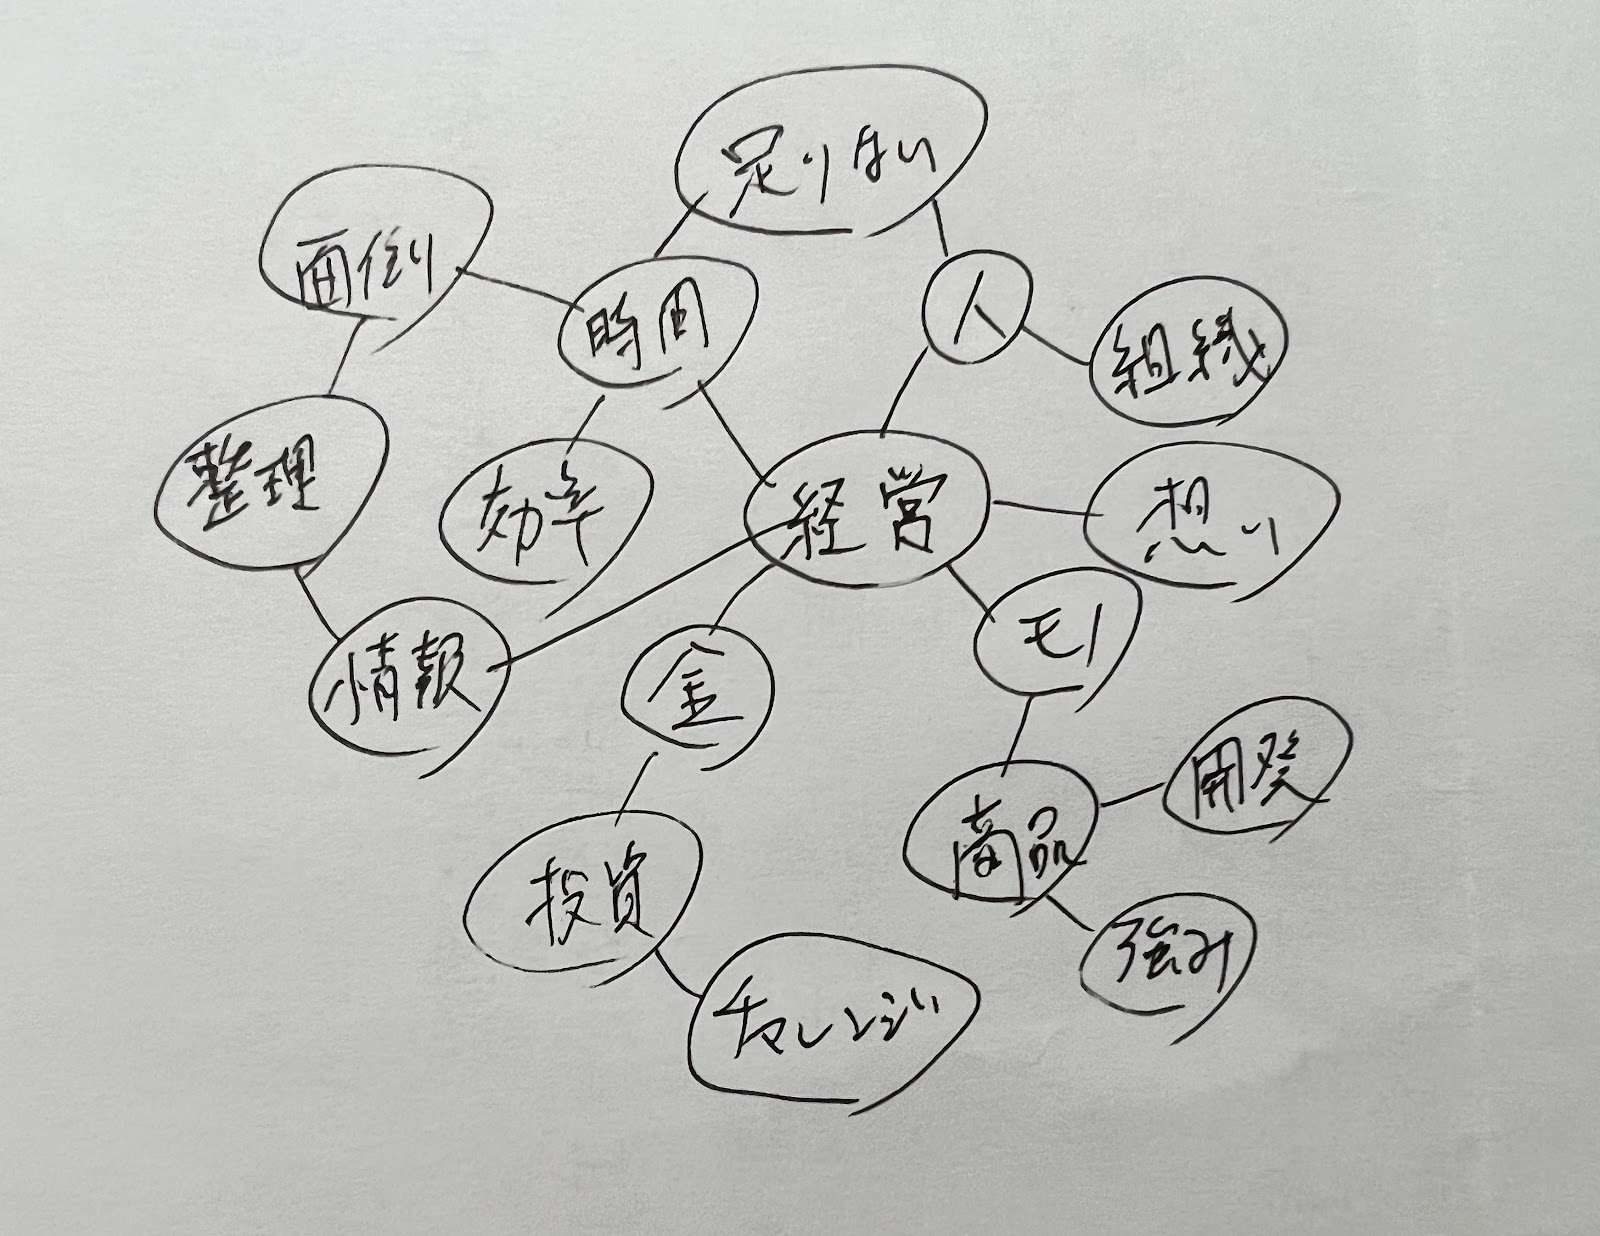 足りない
面倒
時間
人
組織
整理
効率
経営
想い
情報
金
モノ
商品
開発
投資
強み
チャレンジ